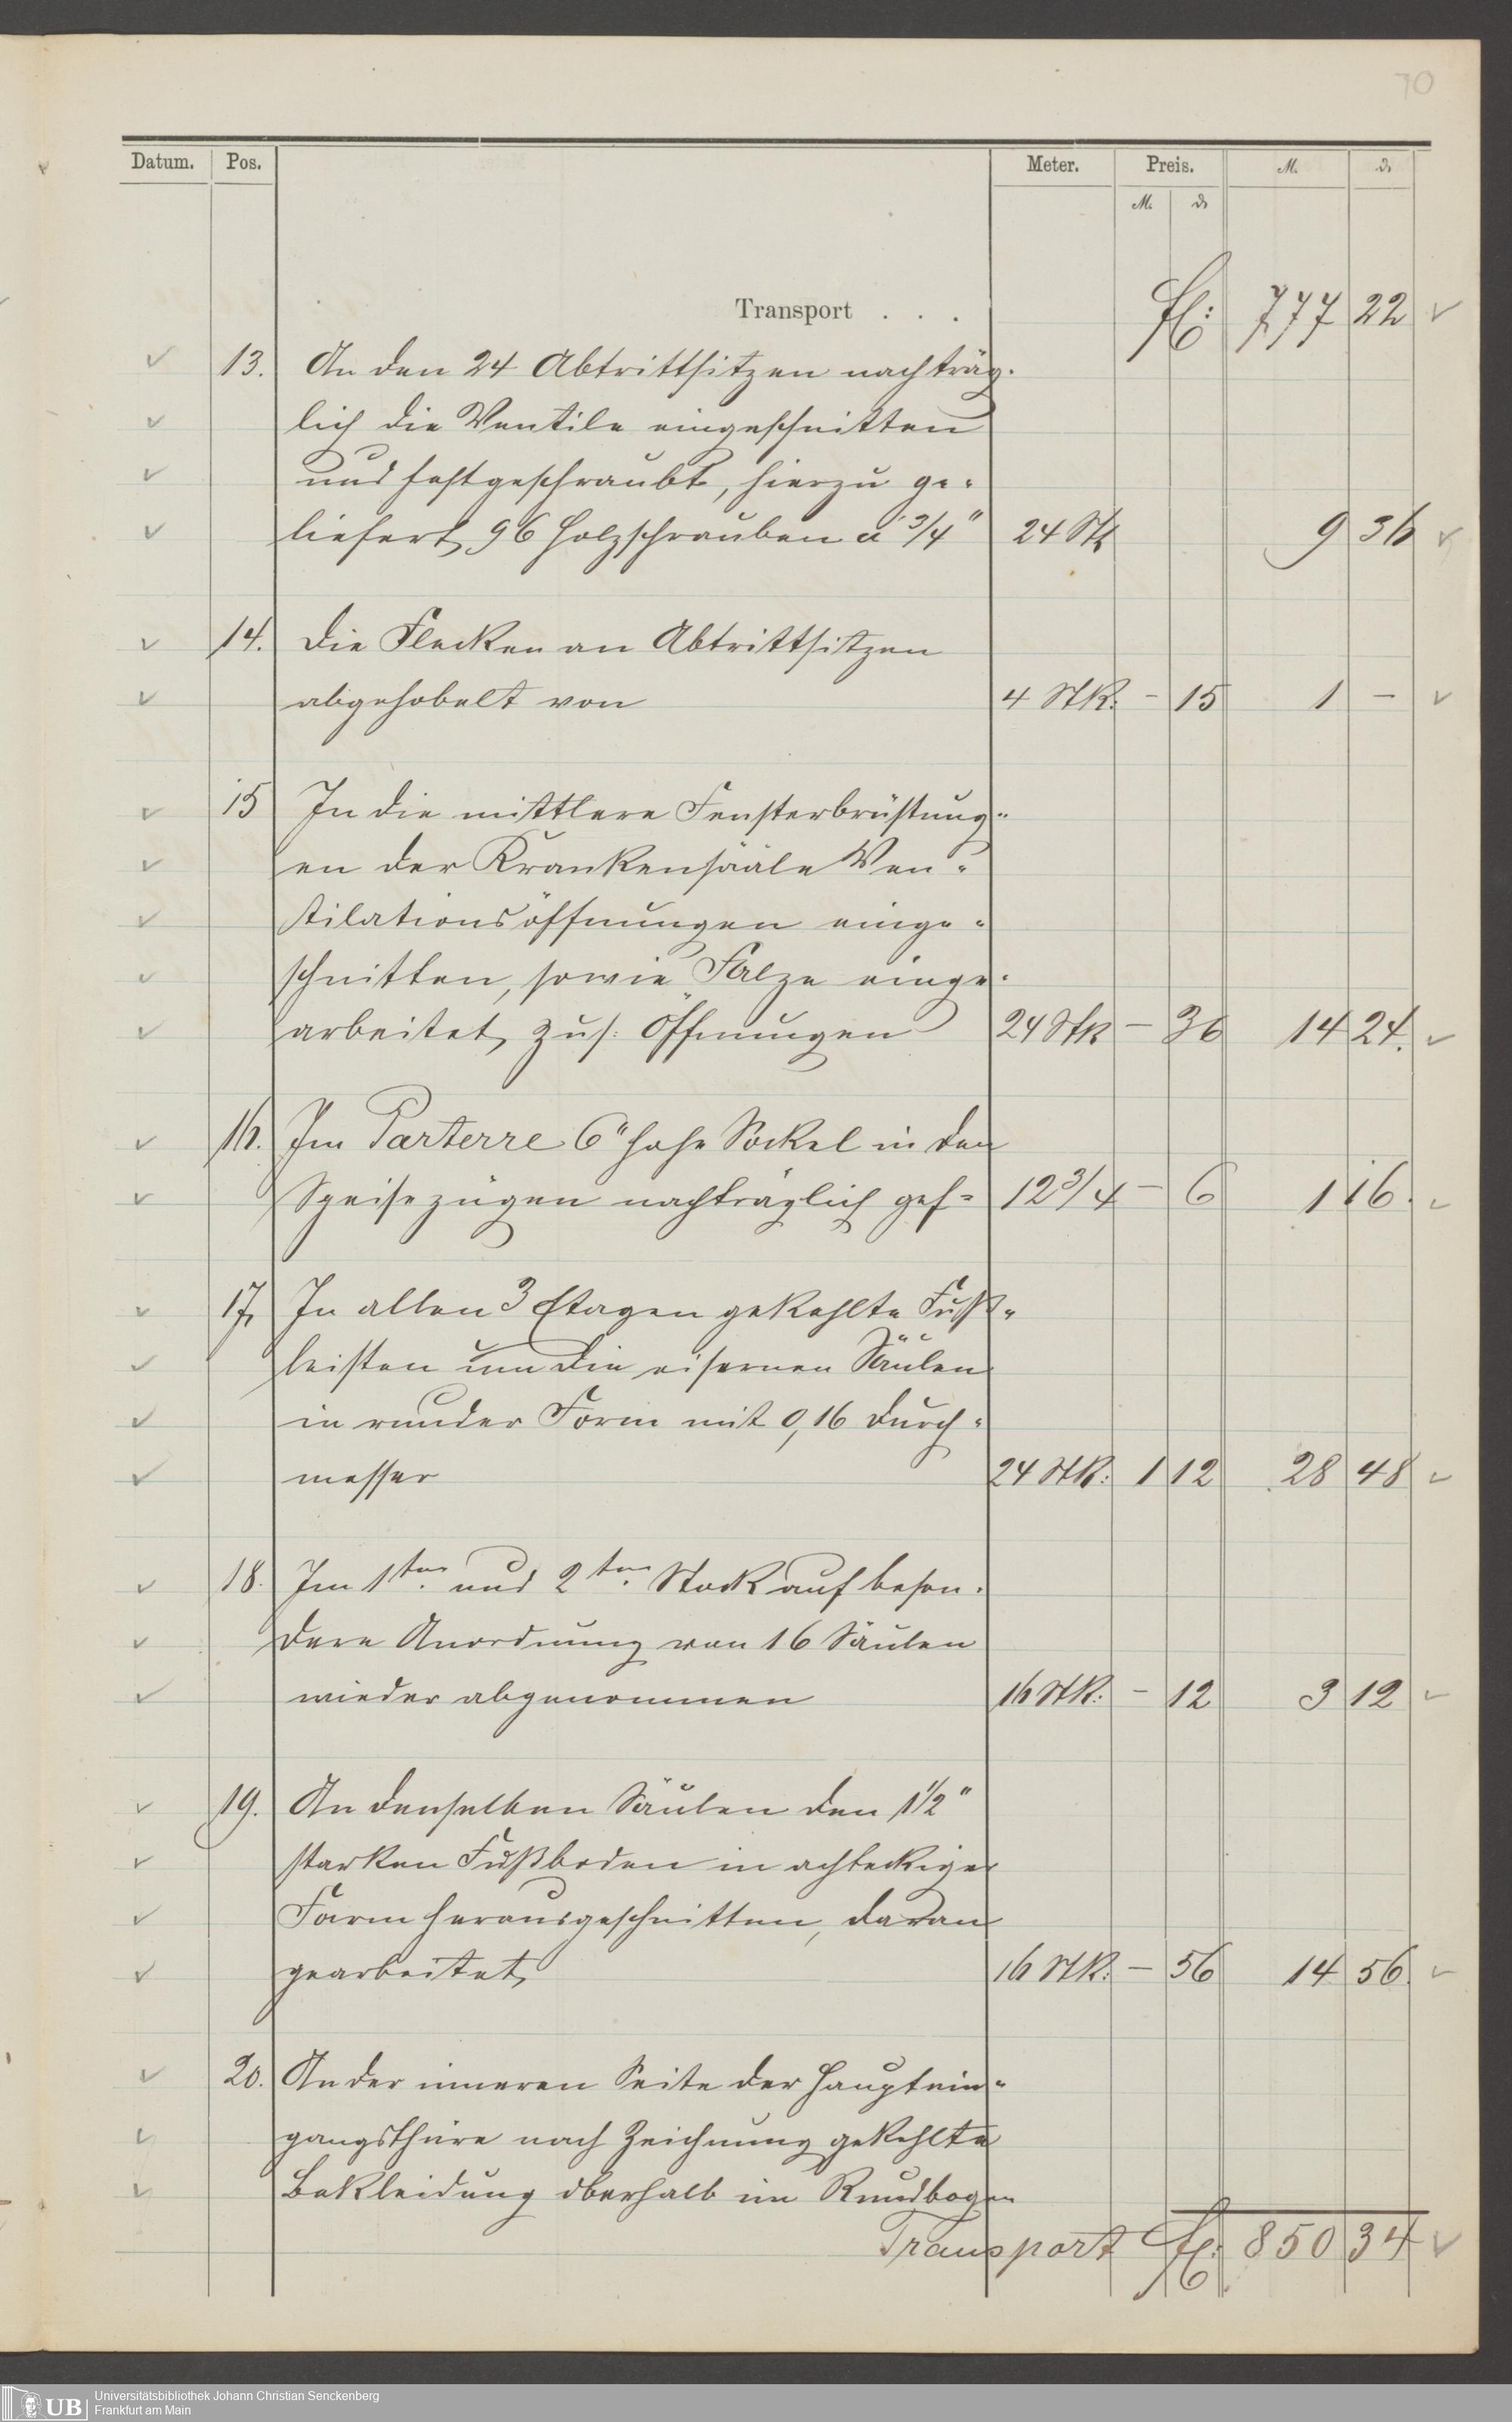 70
Datum. Pos. Meter. Preis. M. ₰
M. ₰
Transport . . . fl: 777 22
13. An den 24 Abtrittsitzen nachträg-
lich die Ventile eingeschnitten
und festgeschraubt, hierzu ge-
liefert, 96 Holzschrauben a 3/4" 24 Stk 9 36
14. Die Flecken an Abtrittsitzen
abgehobelt von 4 Stk: – 15 1 –
15 In die mittlere Fensterbrüstung-
en der Krankensääle Ven-
tilationsöffnungen einge-
schnitten, sowie Falze einge-
arbeitet, zus: Öffnungen 24 Stk – 36 14 24.
16. Im Parterre 6" hohe Sockel in den
Speisezügen nachträglich gef- 12 3/4 – 6 1 16.
17, In allen 3 Etagen gekehlte Fuß-
leisten um die eisernen Säulen
in runder Form mit 0,16 Durch-
messer 24 Stk: 1 12 28 48
18. Im 1ten. und 2ten. Stock auf beson-
dere Anordnung von 16 Säulen
wieder abgenommen 16 Stk: – 12 3 12
19. An denselben Säulen den 1 1/2"
starken Fußboden in achteckiger
Form herausgeschnitten, daran
gearbeitet, 16 Stk: – 56 14 56
20. An der inneren Seite der Hauptein-
gangsthüre nach Zeichnung gekehlte
Bekleidung oberhalb im Rundbogen
Transport fl: 850 34
UB Universitätsbibliothek Johann Christian Senckenberg
Frankfurt am Main